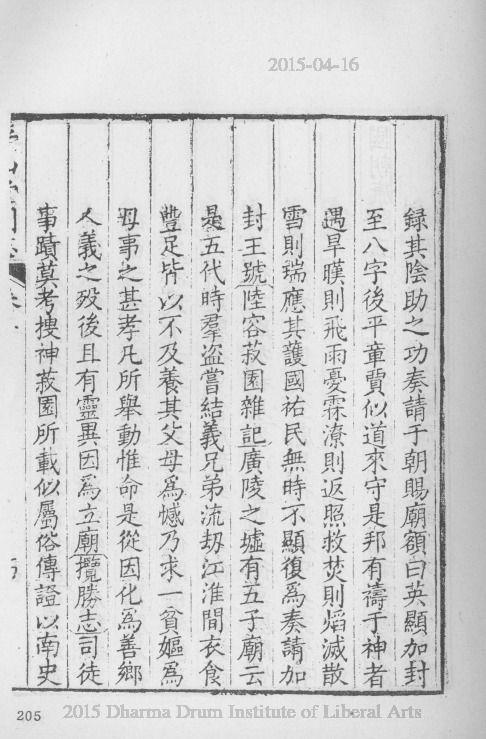 2015-04-16
録其陰助之功奏請于朝賜廟額曰英顯加封
至八字後平章賈似道來守是邦有禱于神者
遇旱暵則飛雨憂霖潦則返照救焚則熖滅散
雪則瑞應其護國祐民無時不顯復為奏請加
封王號陸容菽園雜記廣陵之墟有五子廟云
是五代時羣盜嘗結義兄弟流刼江淮間衣食
豐足皆以不及養其父母爲憾乃求一貧嫗爲
母事之甚孝凡所舉動惟命是從因化爲善鄉
人義之歿後且有靈異因爲立廟攬勝志司徒
事蹟莫考搜神菽園所載似屬俗傳證以南史
卷
205
2015 Dharma Drum Institute of Liberal Arts